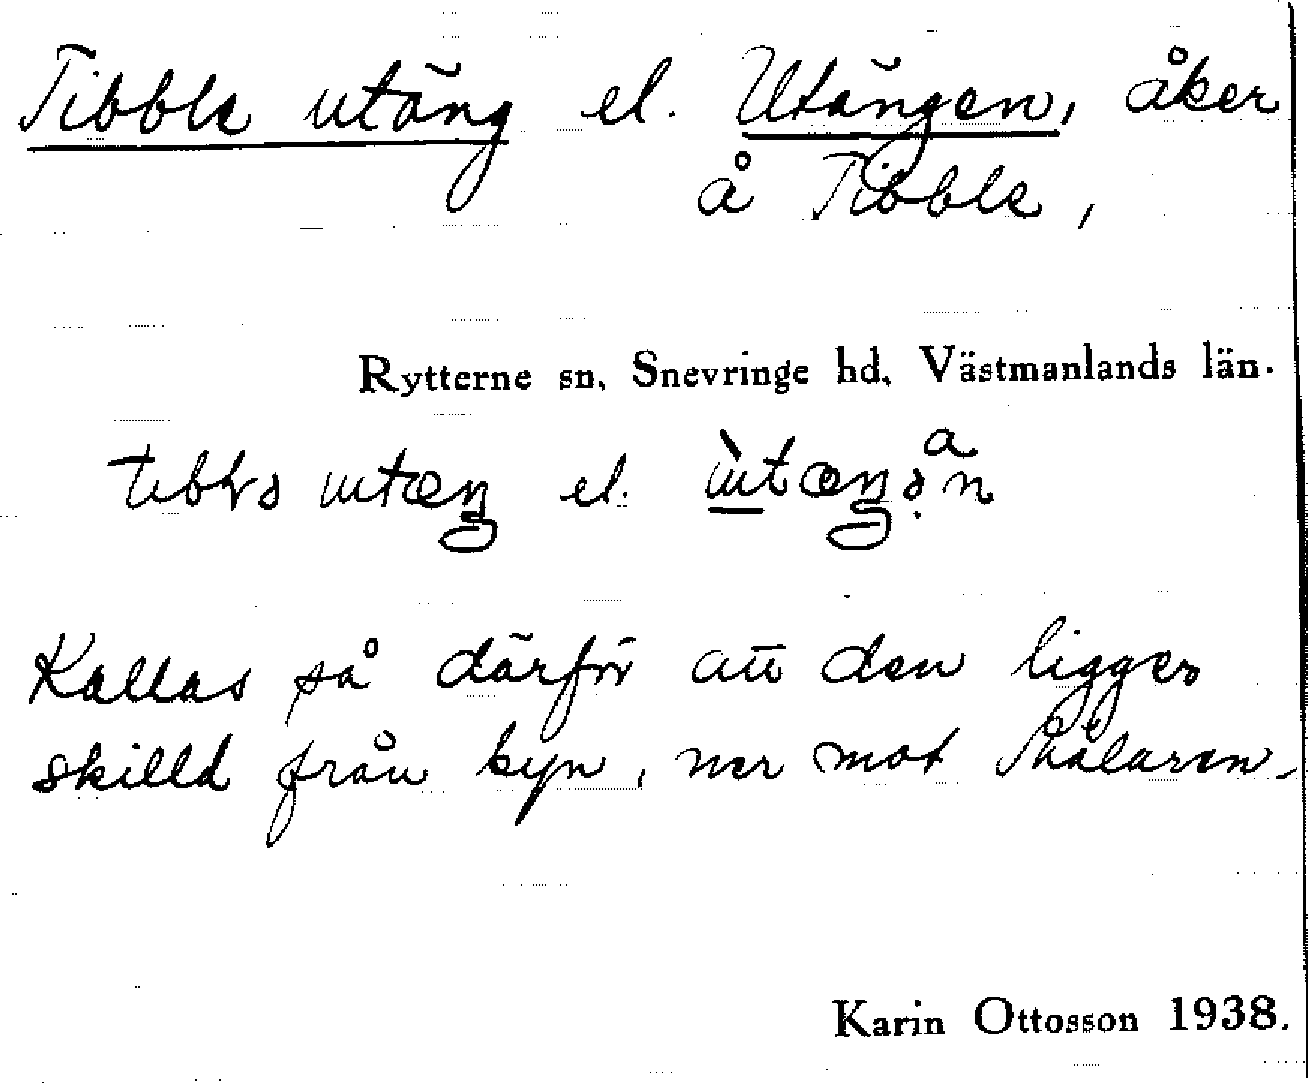 Tibble utäng el. Utängen, åker
å Tibble,
Rytterne sn, Snevringe hd, Västmanlands län.
utæŋ el.
Kallas så därför att den ligger
skilld från byn, ner mot Mälaren.
Karin Ottosson 1938.